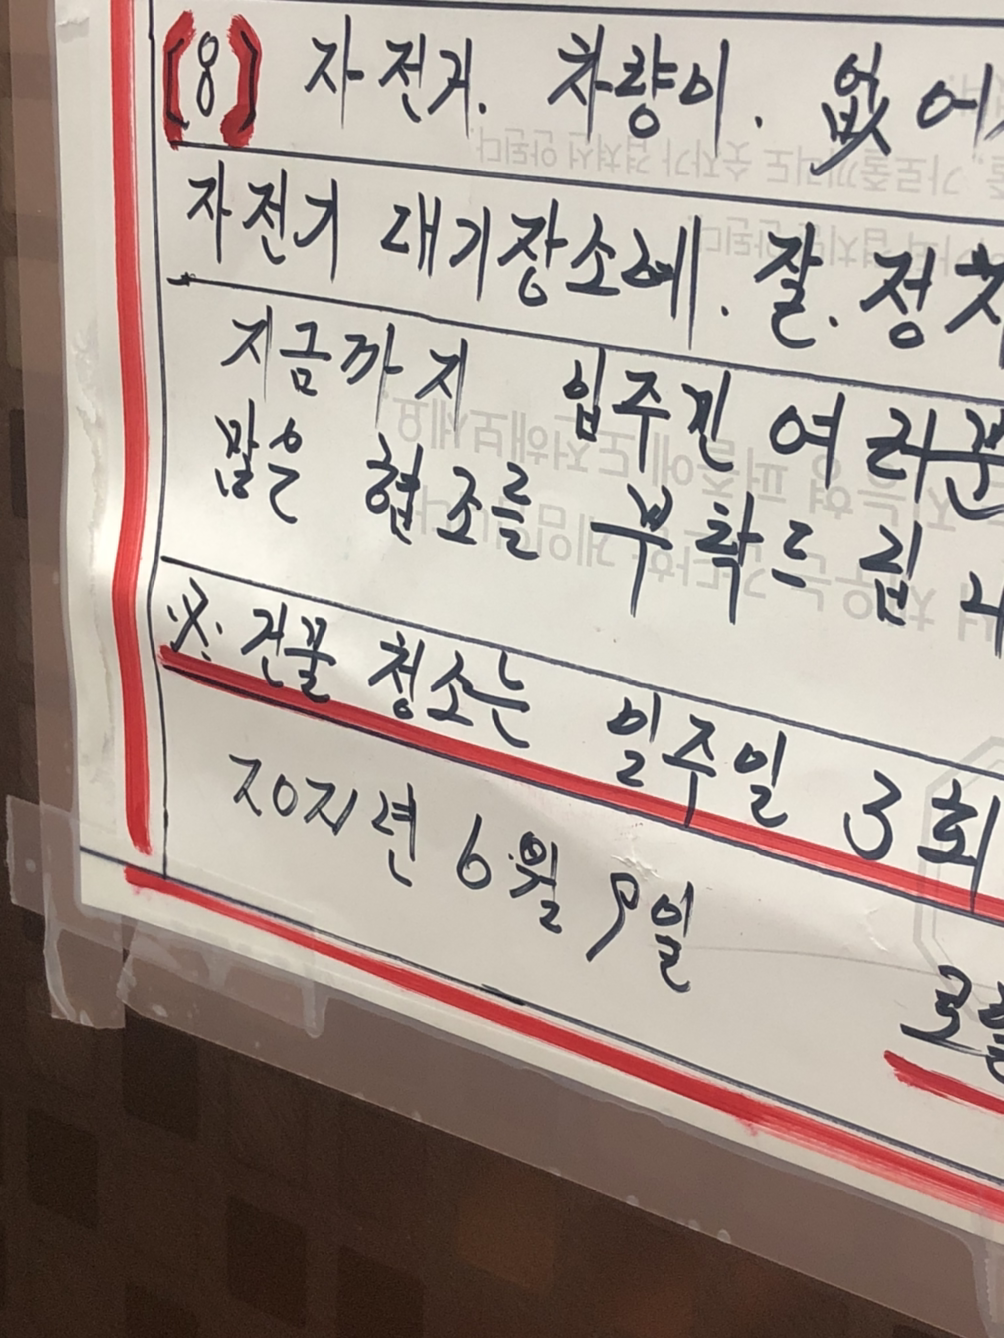 (8) 자전거. 차량이. 없에
자전거 대기장소에. 잘. 정차
지금까지 입주진 여러분
많은 협조를 부탁드립니
※. 건물 청소는 일주일 3회
2021년 6월 9일